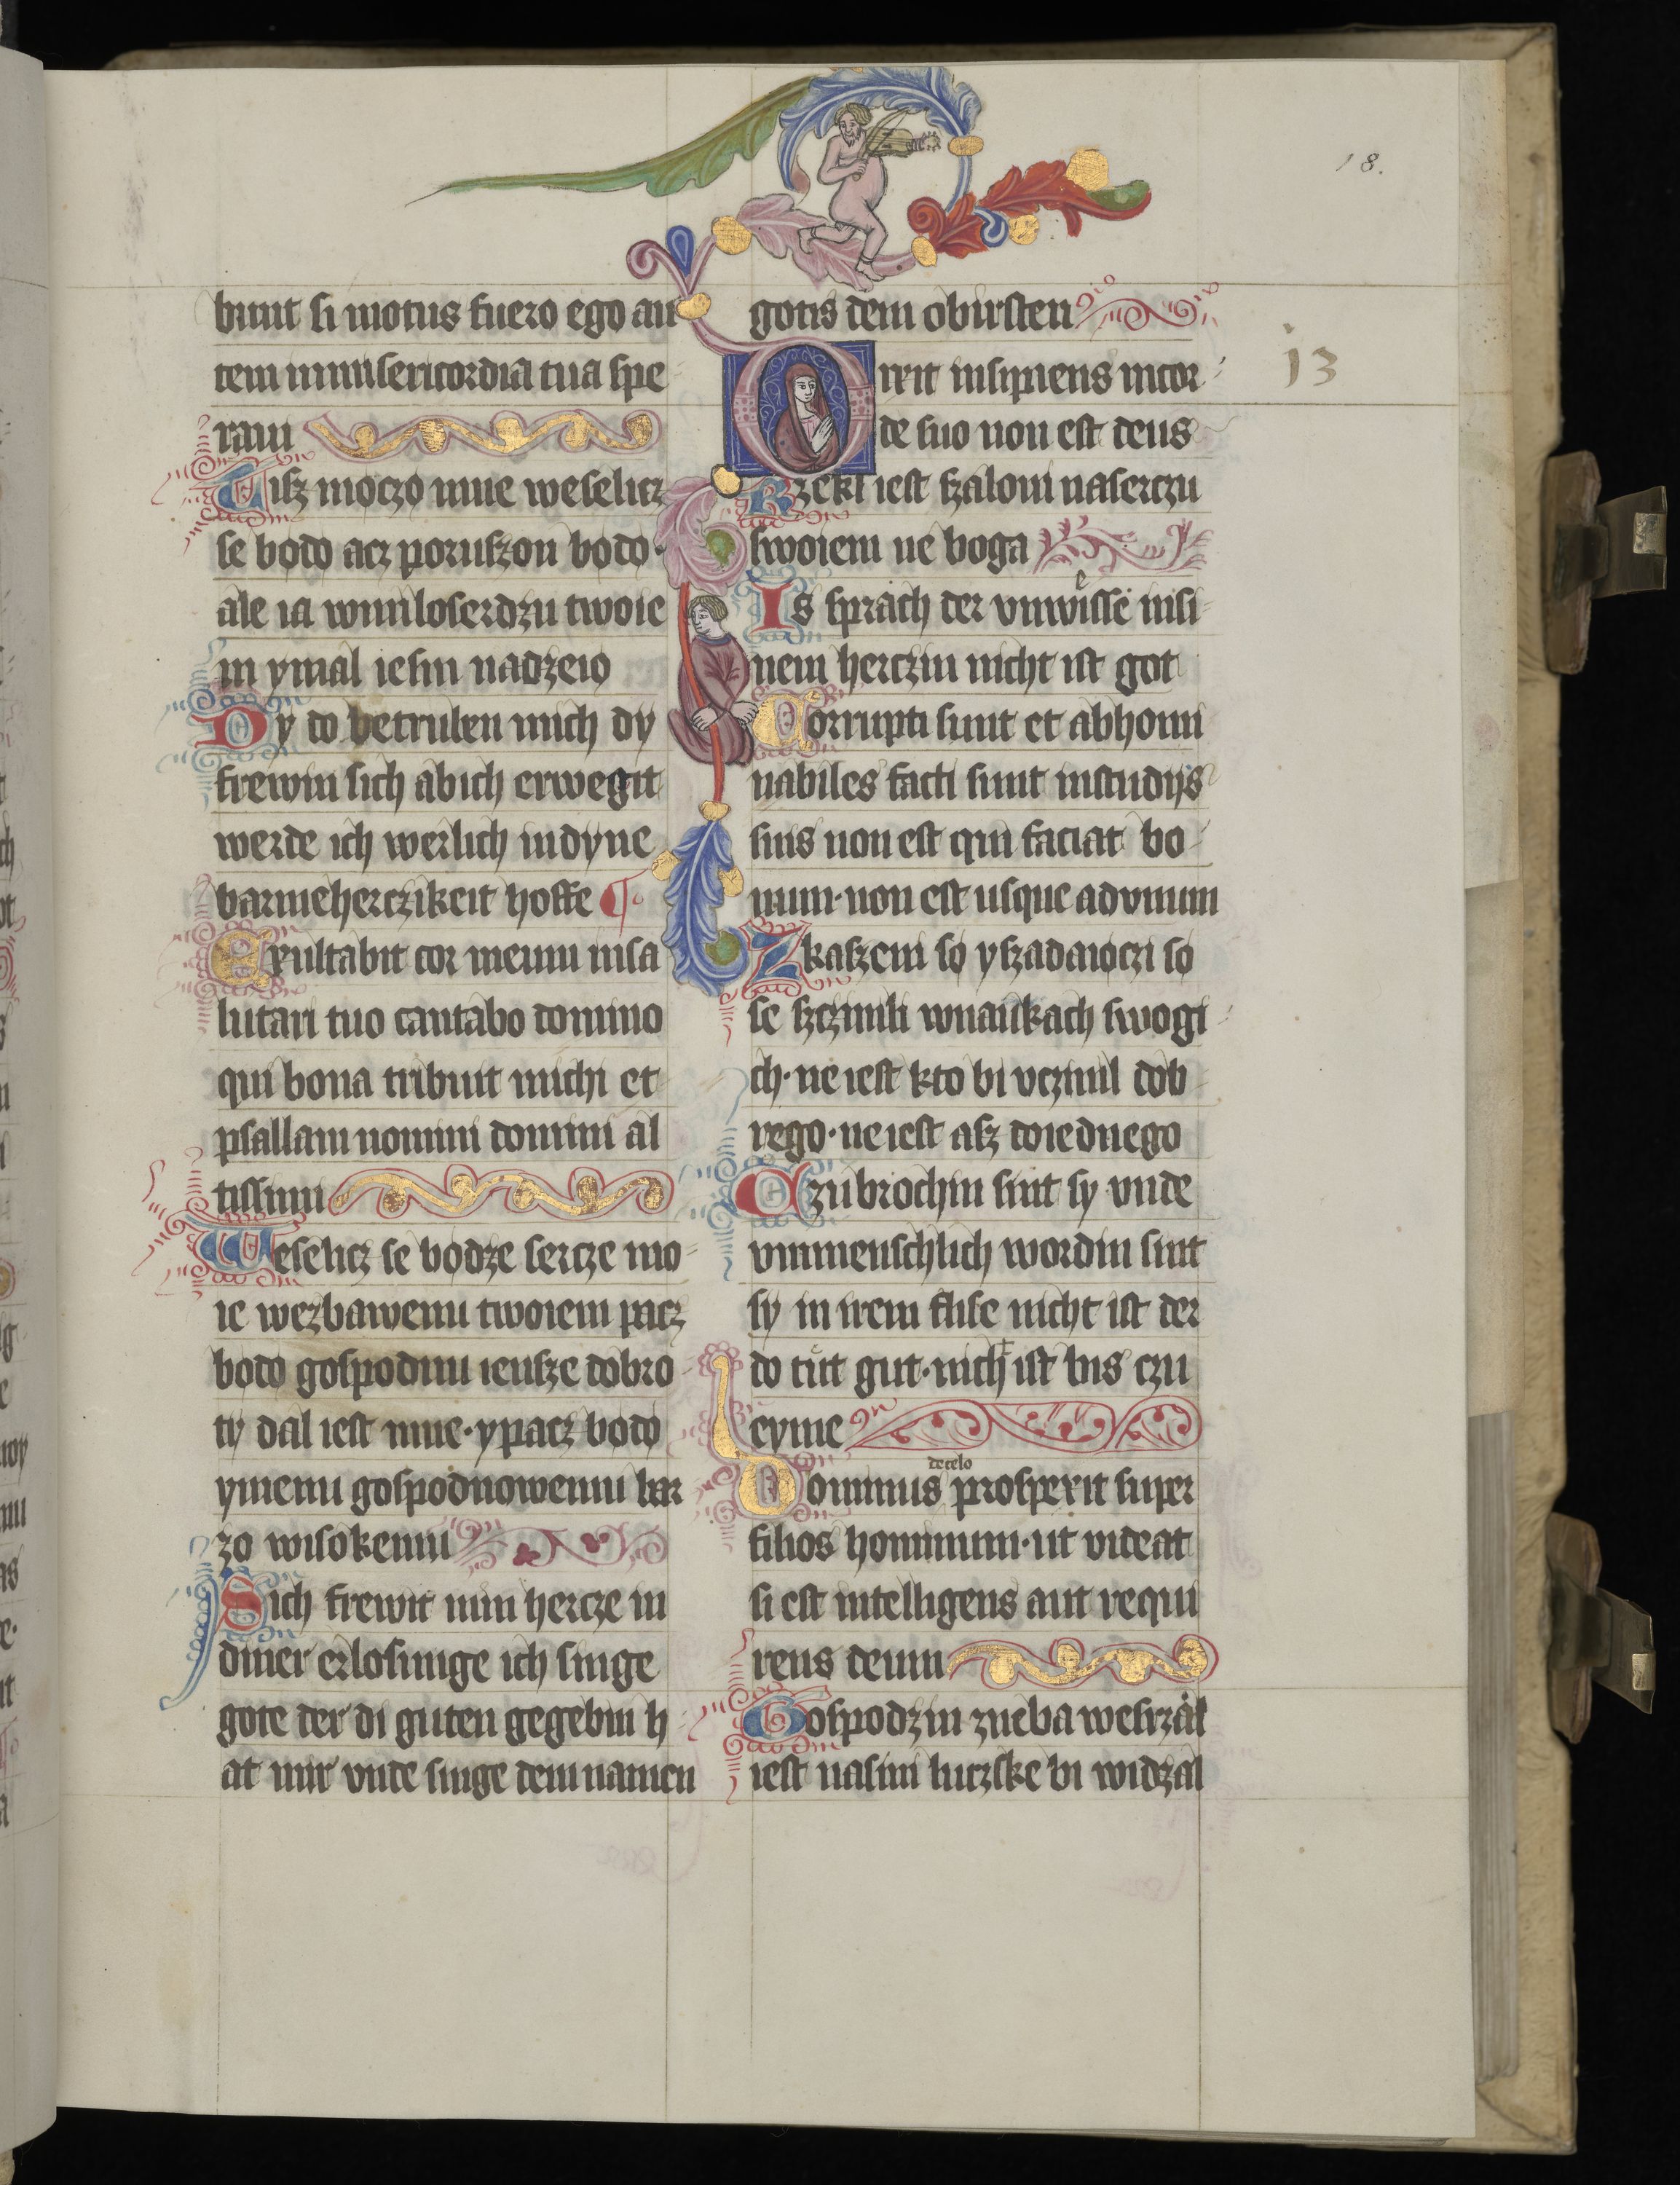 18.
bunt si motus fuero ego au
tem inmisericordia tua spe
raui
Cisz moczo mne weselicz
se bodo acz poruszon bodo·
ale ia wmiloserdzu twoie
m ymal iesm nadzeio
Dy do betruben mich dy
frewin sich abich erwegit
werde ich werlich in dyne
barmeherczikeit hoffe ¶
Exultabit cor meum insa
lutari tuo cantabo domino
qui bona tribuit michi et
psallam nomini domini al
tissimi
Weselicz se bodze sercze mo
ie wezbawenu twoiem pacz
bodo gospodinu iensze dobro
ty dal iest mne·ypacz bodo
ymenu gospodnowemu bar
zo wisokemu
Sich frewit min hercze in
diner erlosunge ich singe
gote der di guten gegebin h
at mir vnde singe dem namen
gotis dem obirsten
Dixit insipiens incor
13
de suo non est deus
Rzekl iest szaloni naserczu
swoiem ne boga
Is sprach der vnwisse insi
nem herczin nicht ist got
Corrupti sunt et abhomi
nabiles facti sunt instudijs
suis non est qui faciat bo
num·non est usque advnum
Zkaszeni so yszadaioczi so
se szczinili wnaukach swogi
ch·ne iest kto bi vczinil dob
rego·ne iest asz doiednego
Czubrochin sint sy vnde
vnmenschlich wordin sint
sy in irem flise nicht ist der
do tut gut·nicht ist bis czu
eyme
decelo
Dominus prospexit super
filios hominum·ut videat
si est intelligens aut requi
rens deum
Gospodzin zneba weszrzal
iest nasini luczske bi widzal